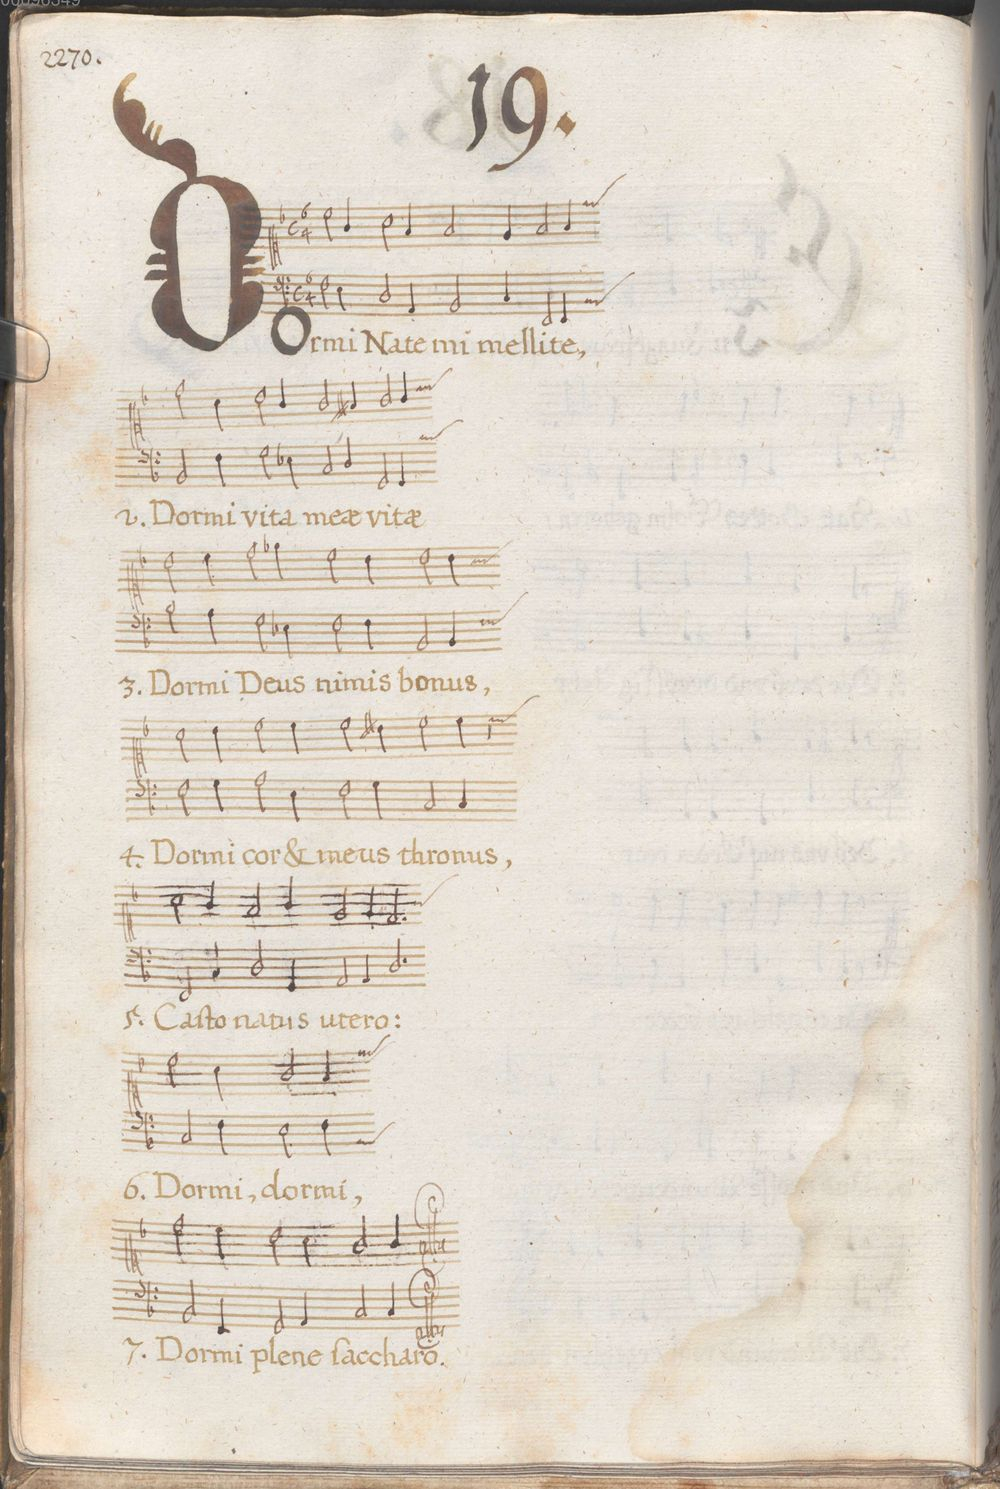 2270.
19.
DOrmi Nate mi mellite,
2. Dormi vita meæ vitæ
3. Dormi Deus nimis bonus,
4. Dormi cor & meus thronus,
5. Casto natus utero:
6. Dormi, dormi,
7. Dormi plene saccharo.